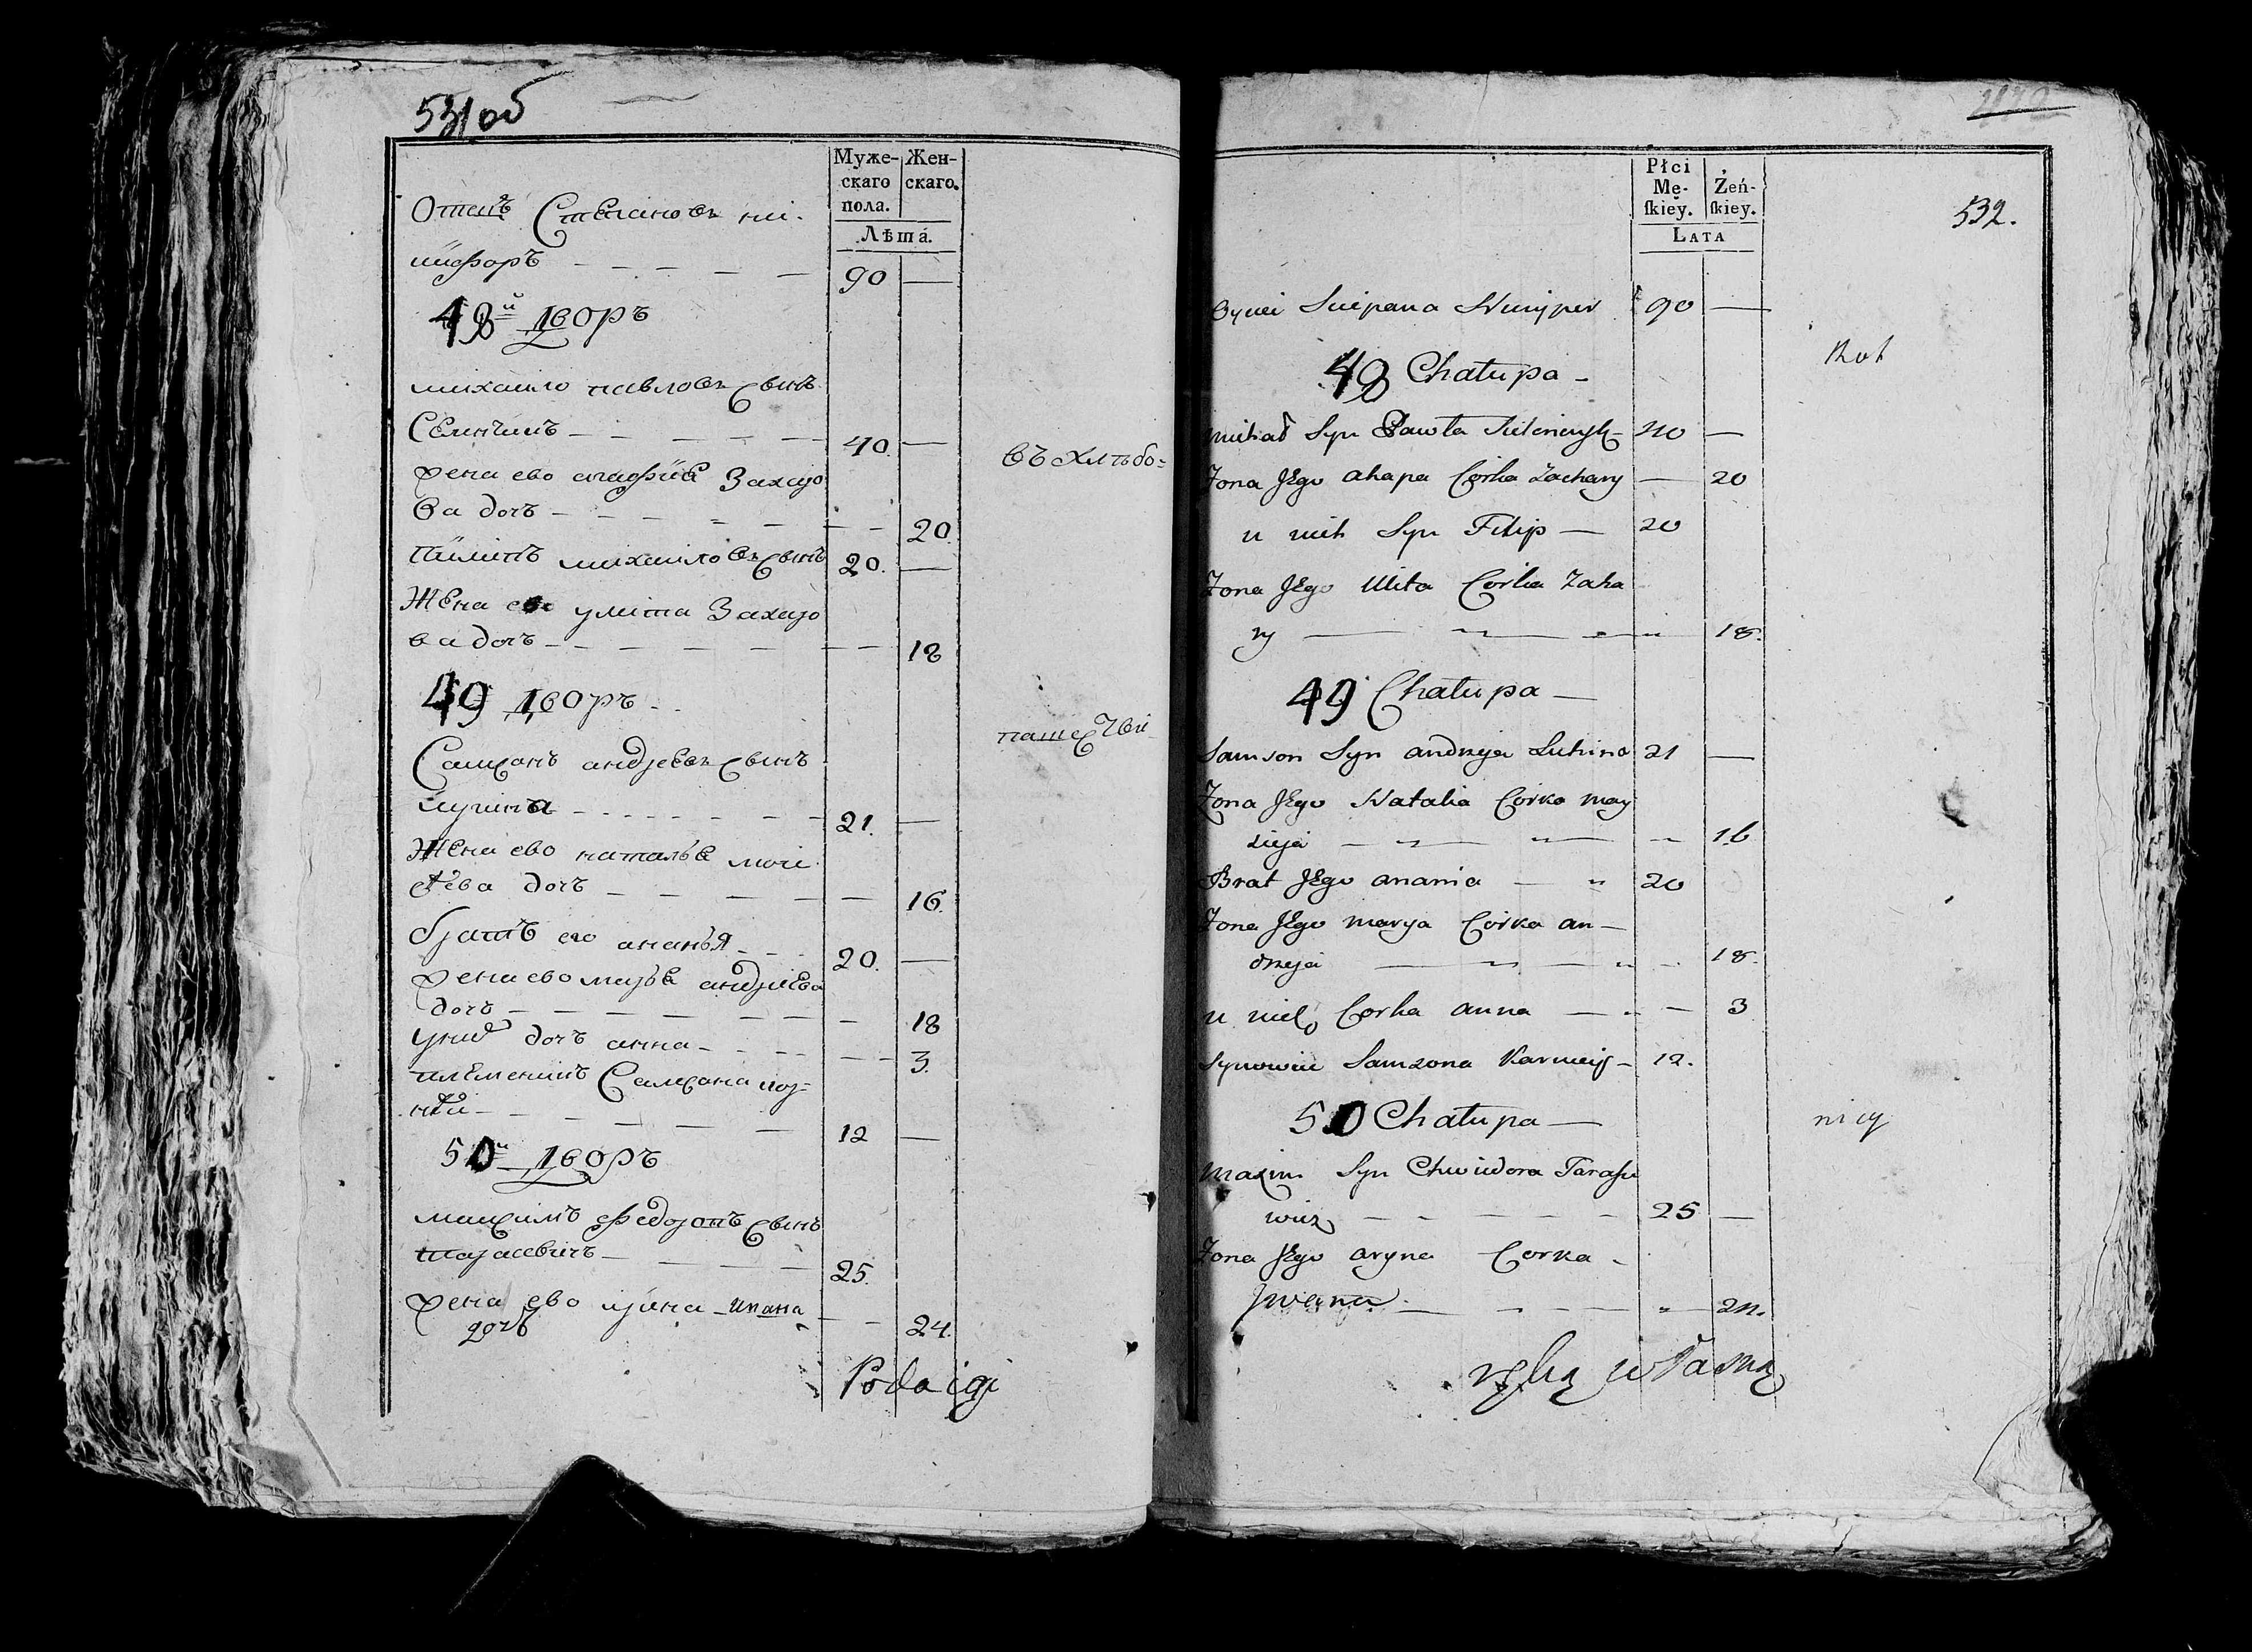 531об
Муже-
скаго
пола.
Жен-
скаго.
Лѣта.
Отецъ Степановъ ни-
кифоръ 90 —
48й Дворъ
михаило павловъ сынъ
40 —
жена ево агафия Захаро
ва дочь — 20.
михаиловъ сынъ 20. —
Жена ево улита Захаро
ва дочь — 18
49 Дворъ
Самсонъ андреевъ сынъ
лучина 21. —
Жена ево наталья мои
сѣева дочь — 16.
братъ его ананья 20. —
жена ево марья андреева
дочь — 18
у них дочь анна — 3.
племеникъ Самсона кор-
нѣй 12 —
50й Дворъ
максимъ федоровъ сынъ
тарасевичъ 25.
жена ево ирина Ивана
дочь 24.
въ хлѣбо=
Podaigi
2170
Płci
Mę-
skiey.
Żeń-
skiey.
Lata
532.
Oyciec Sciepana 90 —
Rok
48 Chałupa
Michał Syn Pawła 40 —
Żona Jego Ahapa Corka Zachary — 20
u nich Syn Filip — 20
Żona Jego Ulita Corka Zaha
ry 18.
49 Chałupa —
Samson Syn andrzeja Luhina 21 —
Żona Jego Natalia Corka may
zieja 16
Brat Jego anania 20
Żona Jego marya Corka an—
drzeja 18.
u nich Corka anna 3
Synowiec Samsona Karniey 12.
50 Chałupa —
nicy
maxim Syn Chwiedora Tarase
wicz 25 —
Żona Jego aryna Corka
Jwana 24.
ręką własną